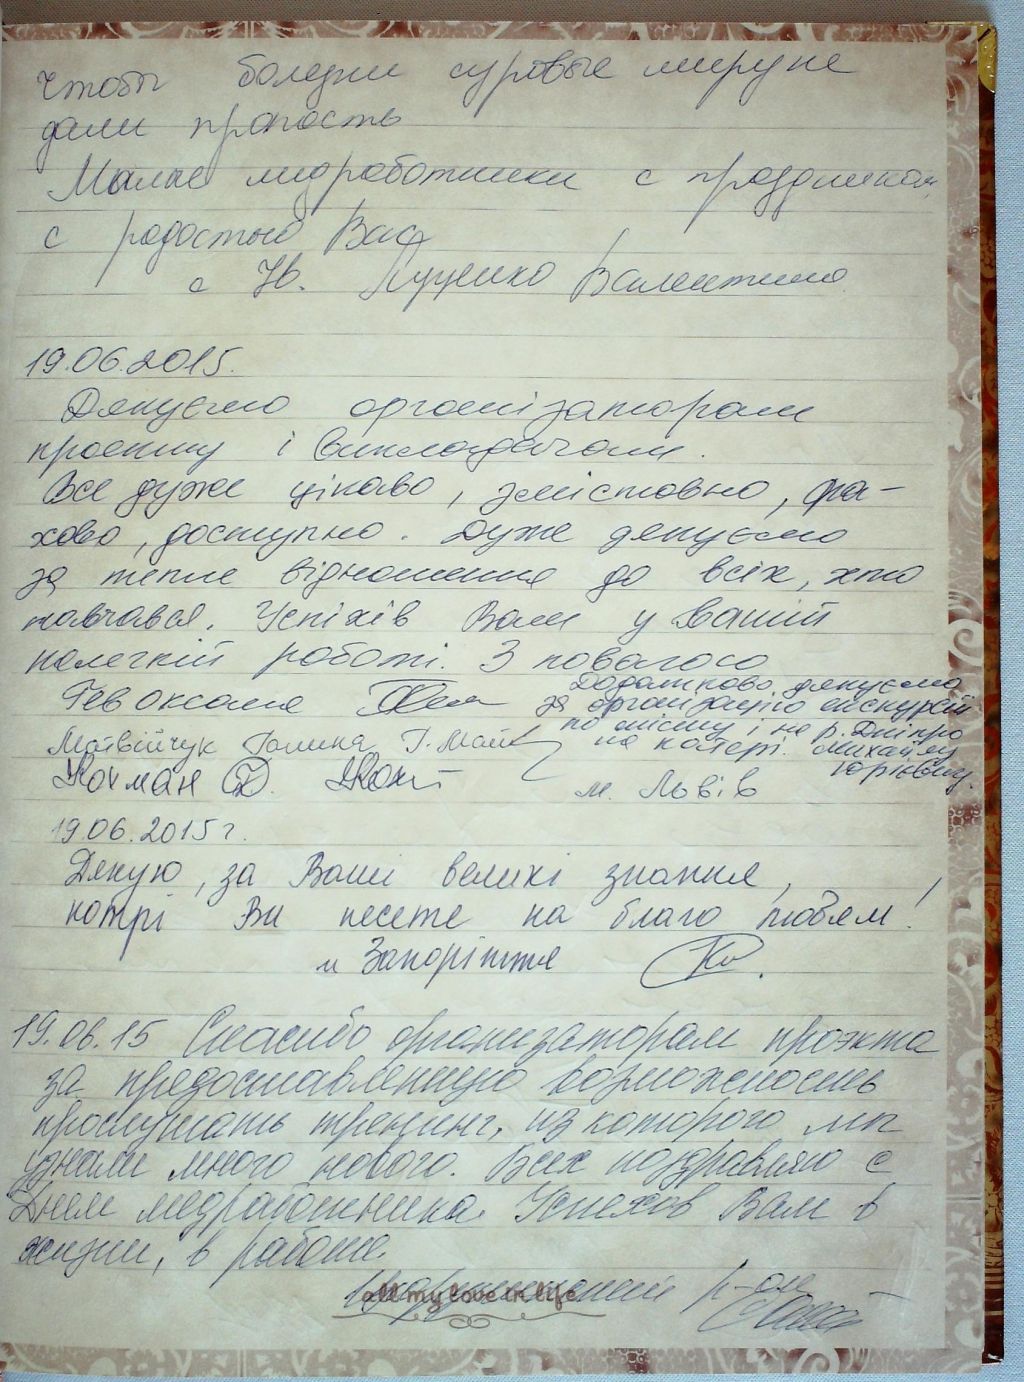 Чтобы болезни суровые миру не
дали пропасть
Милые медработники с праздником,
с радостью Вас
с Ув. Луценко Валентина
19.06.2015.
Дякуємо організаторам
проекту і викладачам.
Все дуже цікаво, змістовно, фа-
хово, доступно. Дуже дякуємо
за тепле відношення до всіх, хто
навчався. Успіхів Вам у Вашій
нелегкій роботі. З повагою
Гев Оксана
Додатково дякуємо
за організацію екскурсій
по місту і на р. Дніпро
на катері. Михайлу
Юрієвичу.
Матвійчук Галина Г. Матв
Кохман
м. Львів
19.06.2015 г.
Дякую, за Ваші великі знання,
котрі Ви несете на благо людям!
м Запоріжжя
19.06.15 Спасибо организаторам проэкта
за предоставленную возможность
прослушать тренинг, из которого мы
узнали много нового. Всех поздравляю с
Днем медработника. Успехов Вам в
жизни, в работе.
р-он
all my love in life